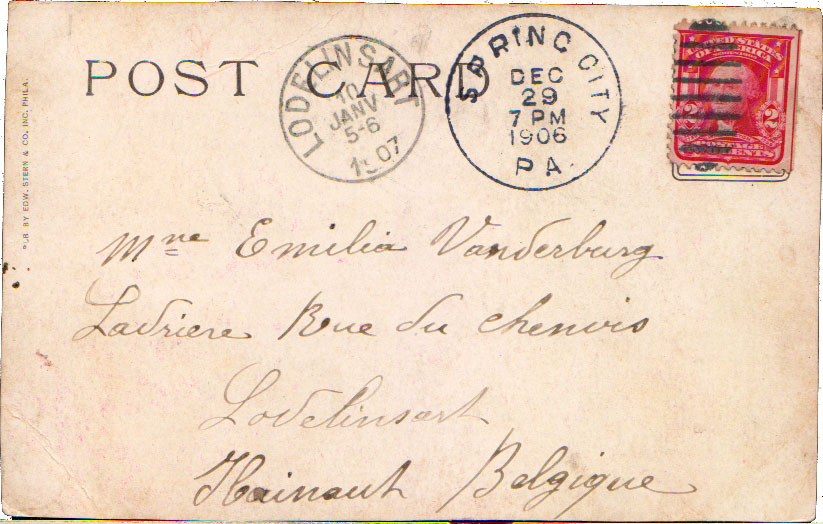 POST CARD
LODELINSART
10
JANV
5-6
1907
SPRING CITY
DEC
29
7 PM
1906
PA.
UNITED STATES
OF AMERICA
2 2
CENTS
BY EDW. STERN & CO. INC. PHILA.
Mme Emilia Vanderburg
Ladriere Rue du chenvis
Lodelinsart
Hainaut Belgique